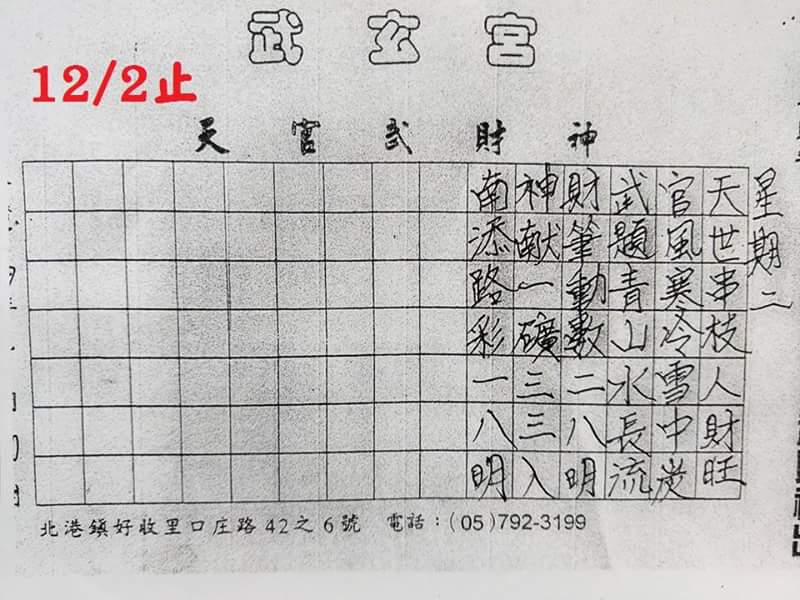 武玄宮
12/2止
天官武財神
星期二
天世串枝人財旺
官風寒冷雪中炭
武題青山水長流
財筆動數二八明
神献一礦三三入
南添路彩一八明
北港鎮好收里口庄路42之6號 電話：(05)792-3199